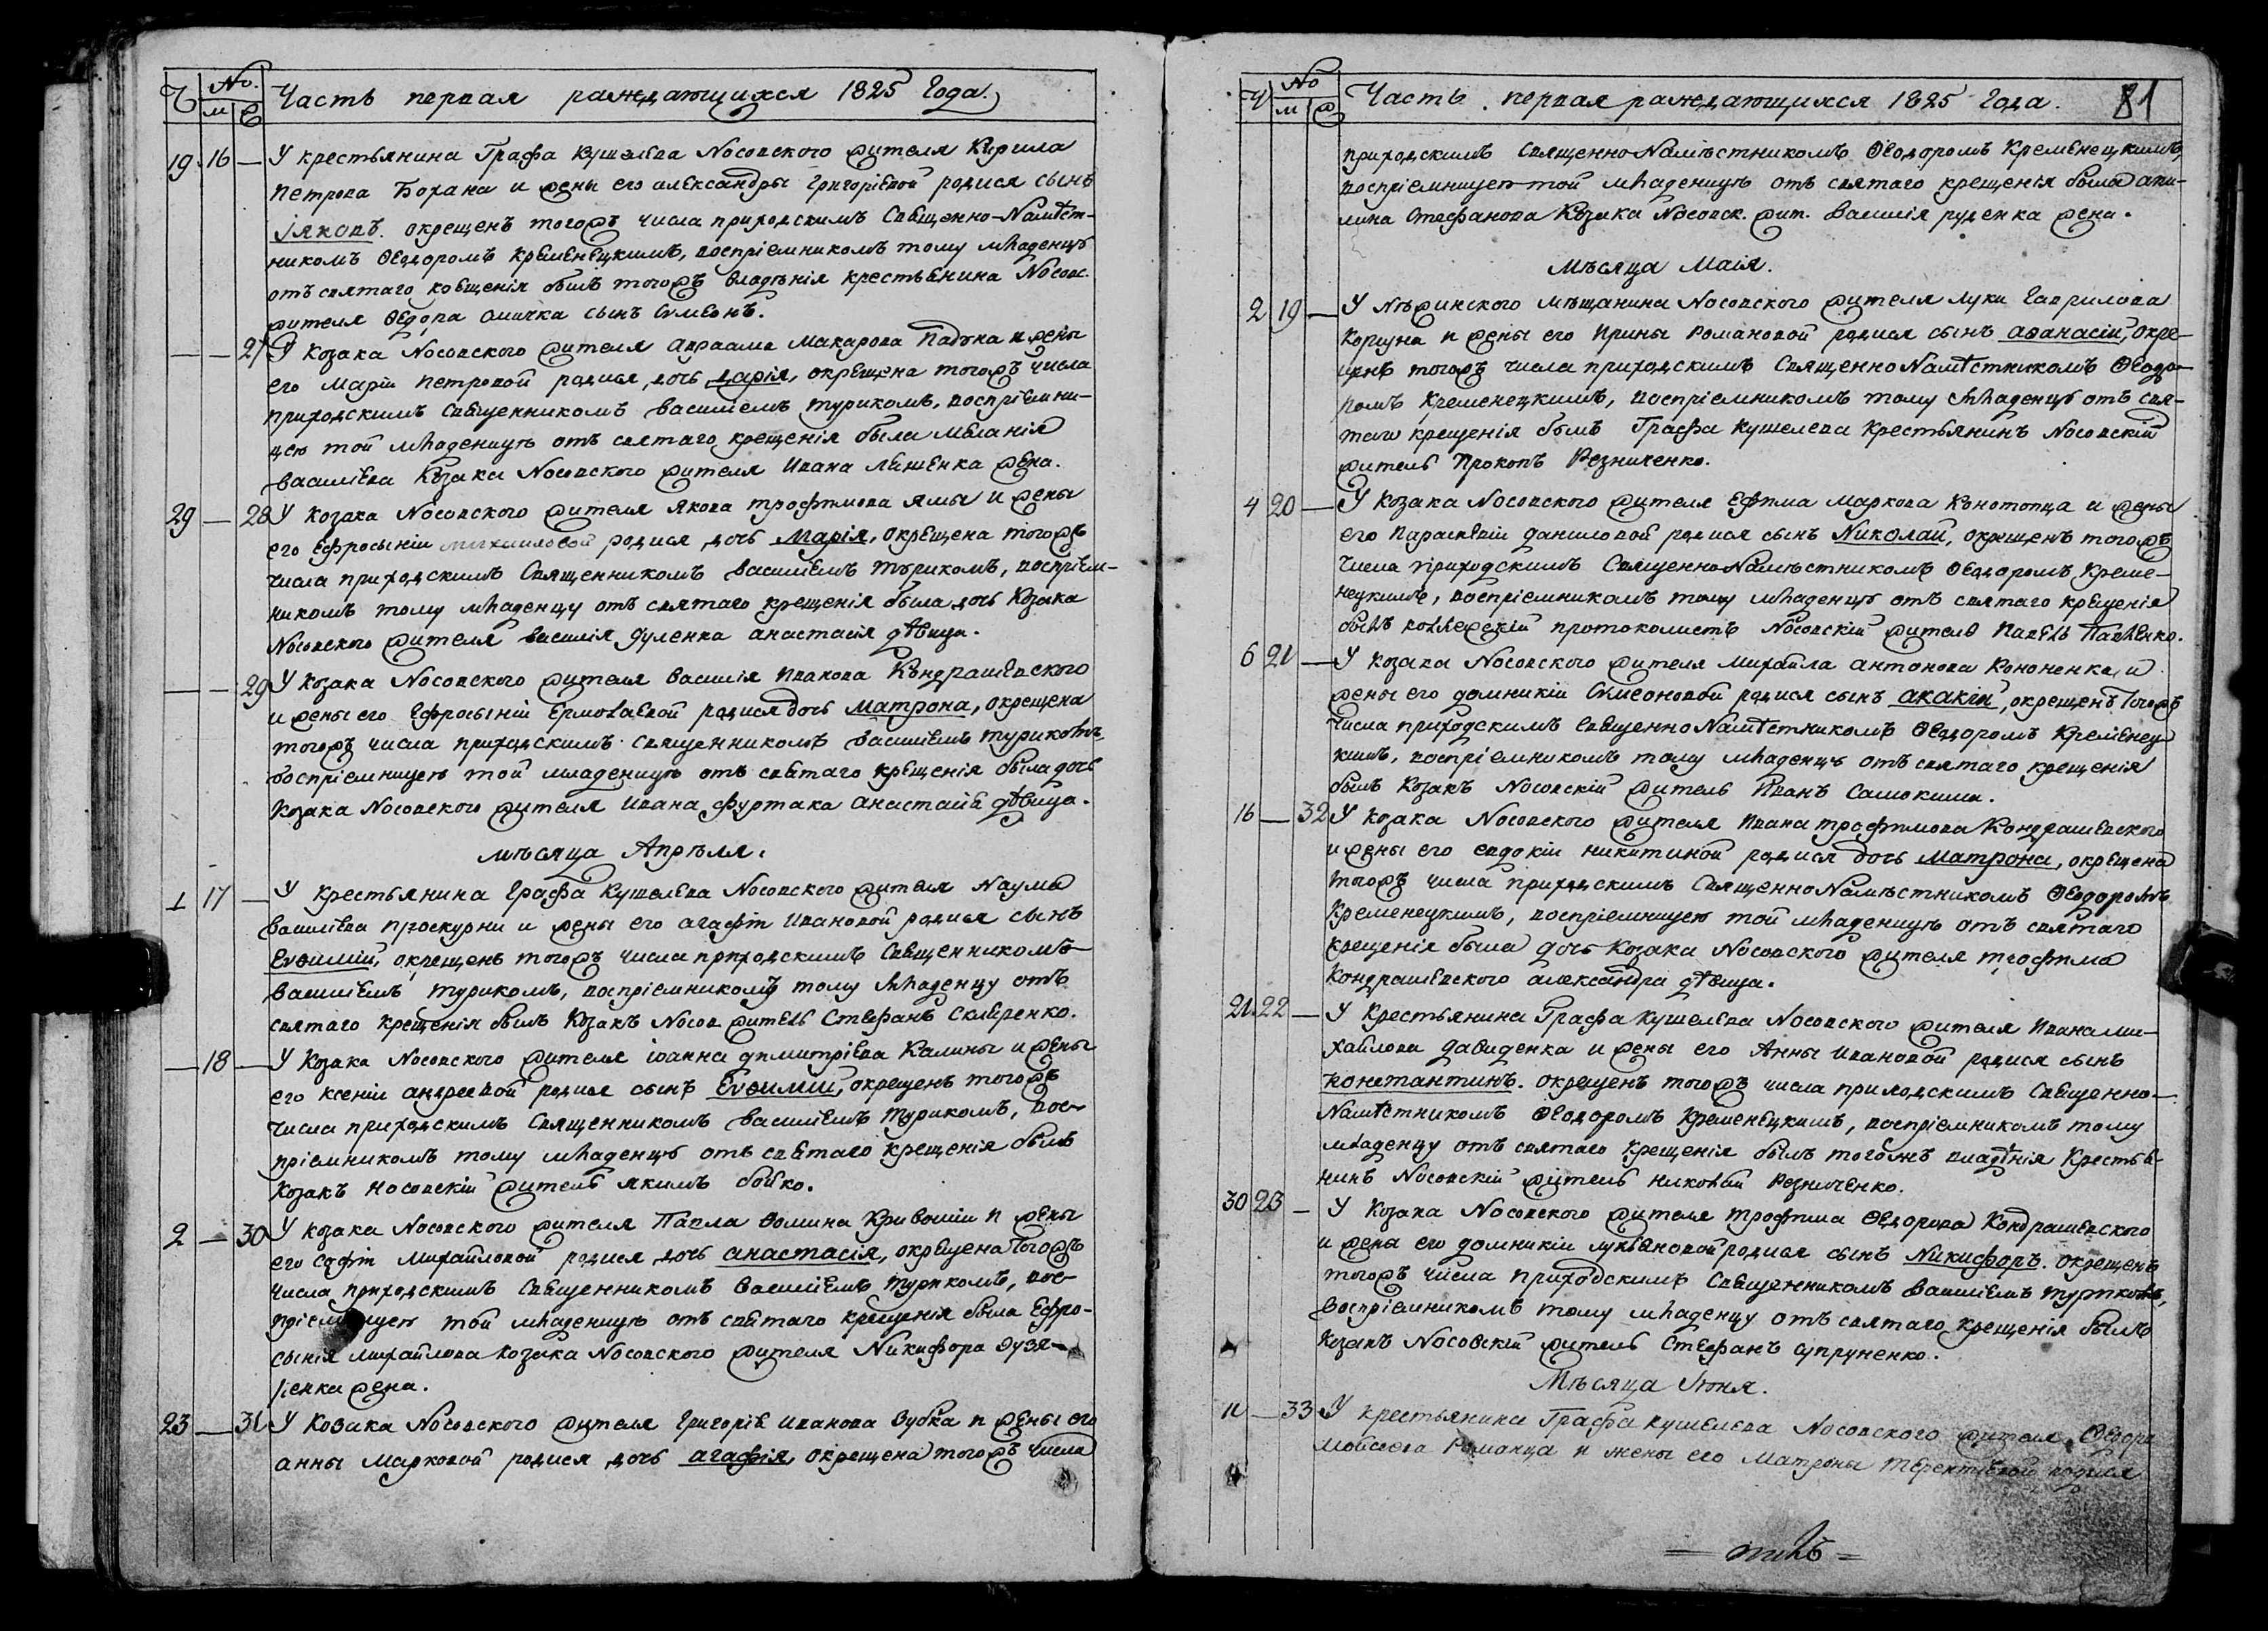 Ч № м ж Часть первая раждающихся 1825 Года.
19 16 — У крестьянина Графа Кушелева Носовского жителя Кирила
Петрова Бохана и жены его александры Григоріевой родися сынъ
Іяковъ. окрещенъ тогожъ числа приходскимъ Священно-Намѣст-
никомъ Феодоромъ Кременецкимъ, воспріемникомъ тому младенцу
отъ святаго крещенія былъ тогожъ владѣнія крестьянина Носовс.
жителя Федора сынъ Сѵмеонъ.
— — 27 У Козака Носовского жителя Авраама Макарова и жены
его Маріи Петровой родися дочь Дарія, окрещена тогожъ числа
приходскимъ Священникомъ Василіемъ Турикомъ, воспріемни-
цею той младеницѣ отъ святаго крещенія была Меланія
Василіева Козака Носовского жителя Ивана Лешенка жена.
29 — 28 У Козака Носовского жителя Якова Трофимова Ямы и жены
его Ефросыніи Михайловой родися дочь Марія, окрещена тогожъ
числа приходскимъ Священникомъ Василіемъ Турикомъ, воспріем-
никомъ тому младенцу отъ святаго крещенія была дочь Козака
Носовского жителя Василія Дуленка анастасія дѣвица.
— — 29 У Козака Носовского жителя Василія Иванова Кондрашевского
и жены его Ефросыніи Ермолаевой родися дочь Матрона, окрещена
тогожъ числа приходскимъ священникомъ Василіемъ Турикомъ,
воспріемницею той младеницѣ отъ святаго крещенія была дочь
Козака Носовского жителя Ивана Фуртака Анастасія дѣвица.
мѣсяца Апрѣля.
1 17 — У крестьянина Графа Кушелева Носовского жителя Наума
Василіева Проскурни и жены его агафіи Ивановой родися сынъ
Евѳимій, окрещенъ тогожъ числа приходскимъ Священникомъ
Василіемъ Турикомъ, воспріемникомъ тому младенцу отъ
святаго крещенія былъ Козакъ Носов. житель Стефанъ Скляренко.
— 18 — У Козака Носовского жителя іоанна Димитріева Калины и жены
его Ксеніи андреевой родися сынъ Евѳимій, окрещенъ тогожъ
числа приходскимъ Священникомъ Василіемъ Турикомъ, вос-
пріемникомъ тому младенцу отъ святаго крещенія былъ
Козакъ Носовскій житель Якимъ бойко.
2 — 30 У козака Носовского жителя Павла Фомина Кривошіи и жены
его Софіи Михайловой родися дочь анастасія, окрещена тогожъ
числа приходскимъ Священникомъ Василіемъ Турикомъ, вос-
пріемницею той младеницѣ отъ святаго крещенія была Ефро-
сынія Михайлова Козака Носовского жителя Никифора
жена.
23 — 31 У Козака Носовского жителя Григорія Иванова Зубка и жены его
анны Марковой родися дочь агафія, окрещена тогожъ числа
Ч № м ж Часть первая раждающихся 1825 Года. 81
приходскимъ Священно-Намѣстникомъ Феодоромъ Кременецкимъ,
воспріемницею той младеницѣ отъ святаго крещенія была аки-
лина Стефанова Козака Носовск. жит. Василія Руденка жена.
Мѣсяца Маія.
2 19 — У Нѣжинского мѣщанина Носовского жителя Луки Гаврилова
Коржуна и жены его Ирины Романовой родися сынъ аѳанасій, окре-
щенъ тогожъ числа приходскимъ Священно Намѣстникомъ Феодо-
ромъ Кременецкимъ, воспріемникомъ тому младенцу отъ свя-
таго крещенія былъ Графа Кушелева Крестьянинъ Носовскій
житель Прокопъ Резниченко.
4 20 — У Козака Носовского жителя Ефима Маркова Конотопца и жены
его Параскевіи Даниловой родися сынъ Николай, окрещенъ тогожъ
числа приходскимъ Священно-Намѣстникомъ Феодоромъ Креме-
нецкимъ, воспріемникомъ тому младенцу отъ святаго крещенія
былъ колежскій протоколистъ Носовскій житель Павелъ Павленко.
6 21 — У козака Носовского жителя Михайла антонова Кононенка и
жены его Домникіи Сѵмеоновой родися сынъ акакій, окрещенъ тогожъ
числа приходскимъ Священно Намѣстникомъ Феодоромъ Кременец-
кимъ, воспріемникомъ тому младенцу отъ святаго крещенія
былъ Козакъ Носовскій житель Иванъ Самокиша.
16 — 32 У козака Носовского жителя Ивана Трофимова Кондрашевского
и жены его евдокіи никитиной родися дочь Матрона, окрещена
тогожъ числа приходскимъ Священно Намѣстникомъ Феодоромъ
Кременецкимъ, воспріемницею той младеницѣ отъ святаго
крещенія была дочь Козака Носовского жителя Трофима
Кондрашевского александра дѣвица.
21. 22 — У Крестьянина Графа Кушелева Носовского жителя Ивана Ми-
хайлова Давиденка и жены его Анны Ивановой родися сынъ
Константинъ. окрещенъ тогожъ числа приходскимъ Священно-
Намѣстникомъ Феодоромъ Кременецкимъ, воспріемникомъ тому
младенцу отъ святаго крещенія былъ тогожъ владѣнія Крестья-
нинъ Носовскій житель николай Резниченко.
30 23 — У Козака Носовского жителя Трофима Федорова Кондрашевского
и жены его домникіи лукьяновой родися сынъ Никифоръ. окрещенъ
тогожъ числа приходскимъ Священникомъ Василіемъ Турикомъ,
воспріемникомъ тому младенцу отъ святаго крещенія былъ
Козакъ Носовскій житель Стефанъ Супруненко.
Мѣсяца Іюня.
11 — 33 У крестьянина Графа Кушелева Носовского жителя Федора
Мойсеева Романца и жены его Матроны Терентіевой родися